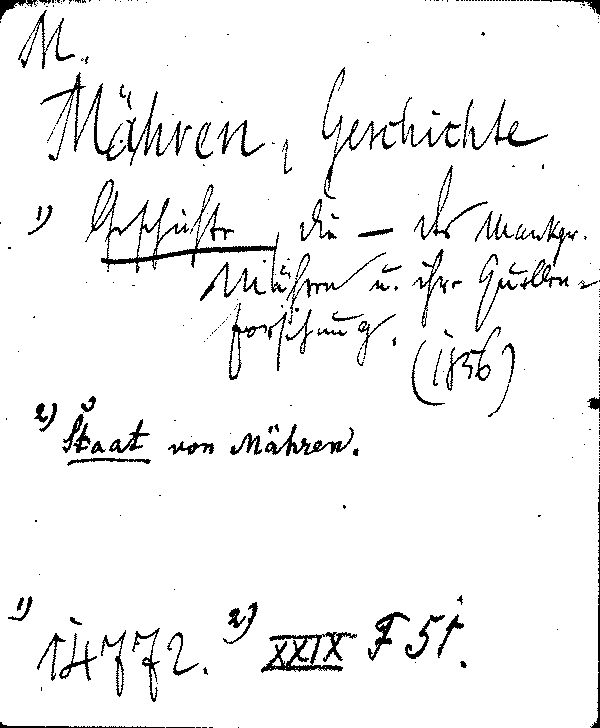 M.
Mähren, Geschichte
1) Geschichte, die — der Markgr.
Mähren u. ihre Quellen-
forschung.
(1856)
2) Staat von Mähren.
1) 14772. 2) XXIX F 51.